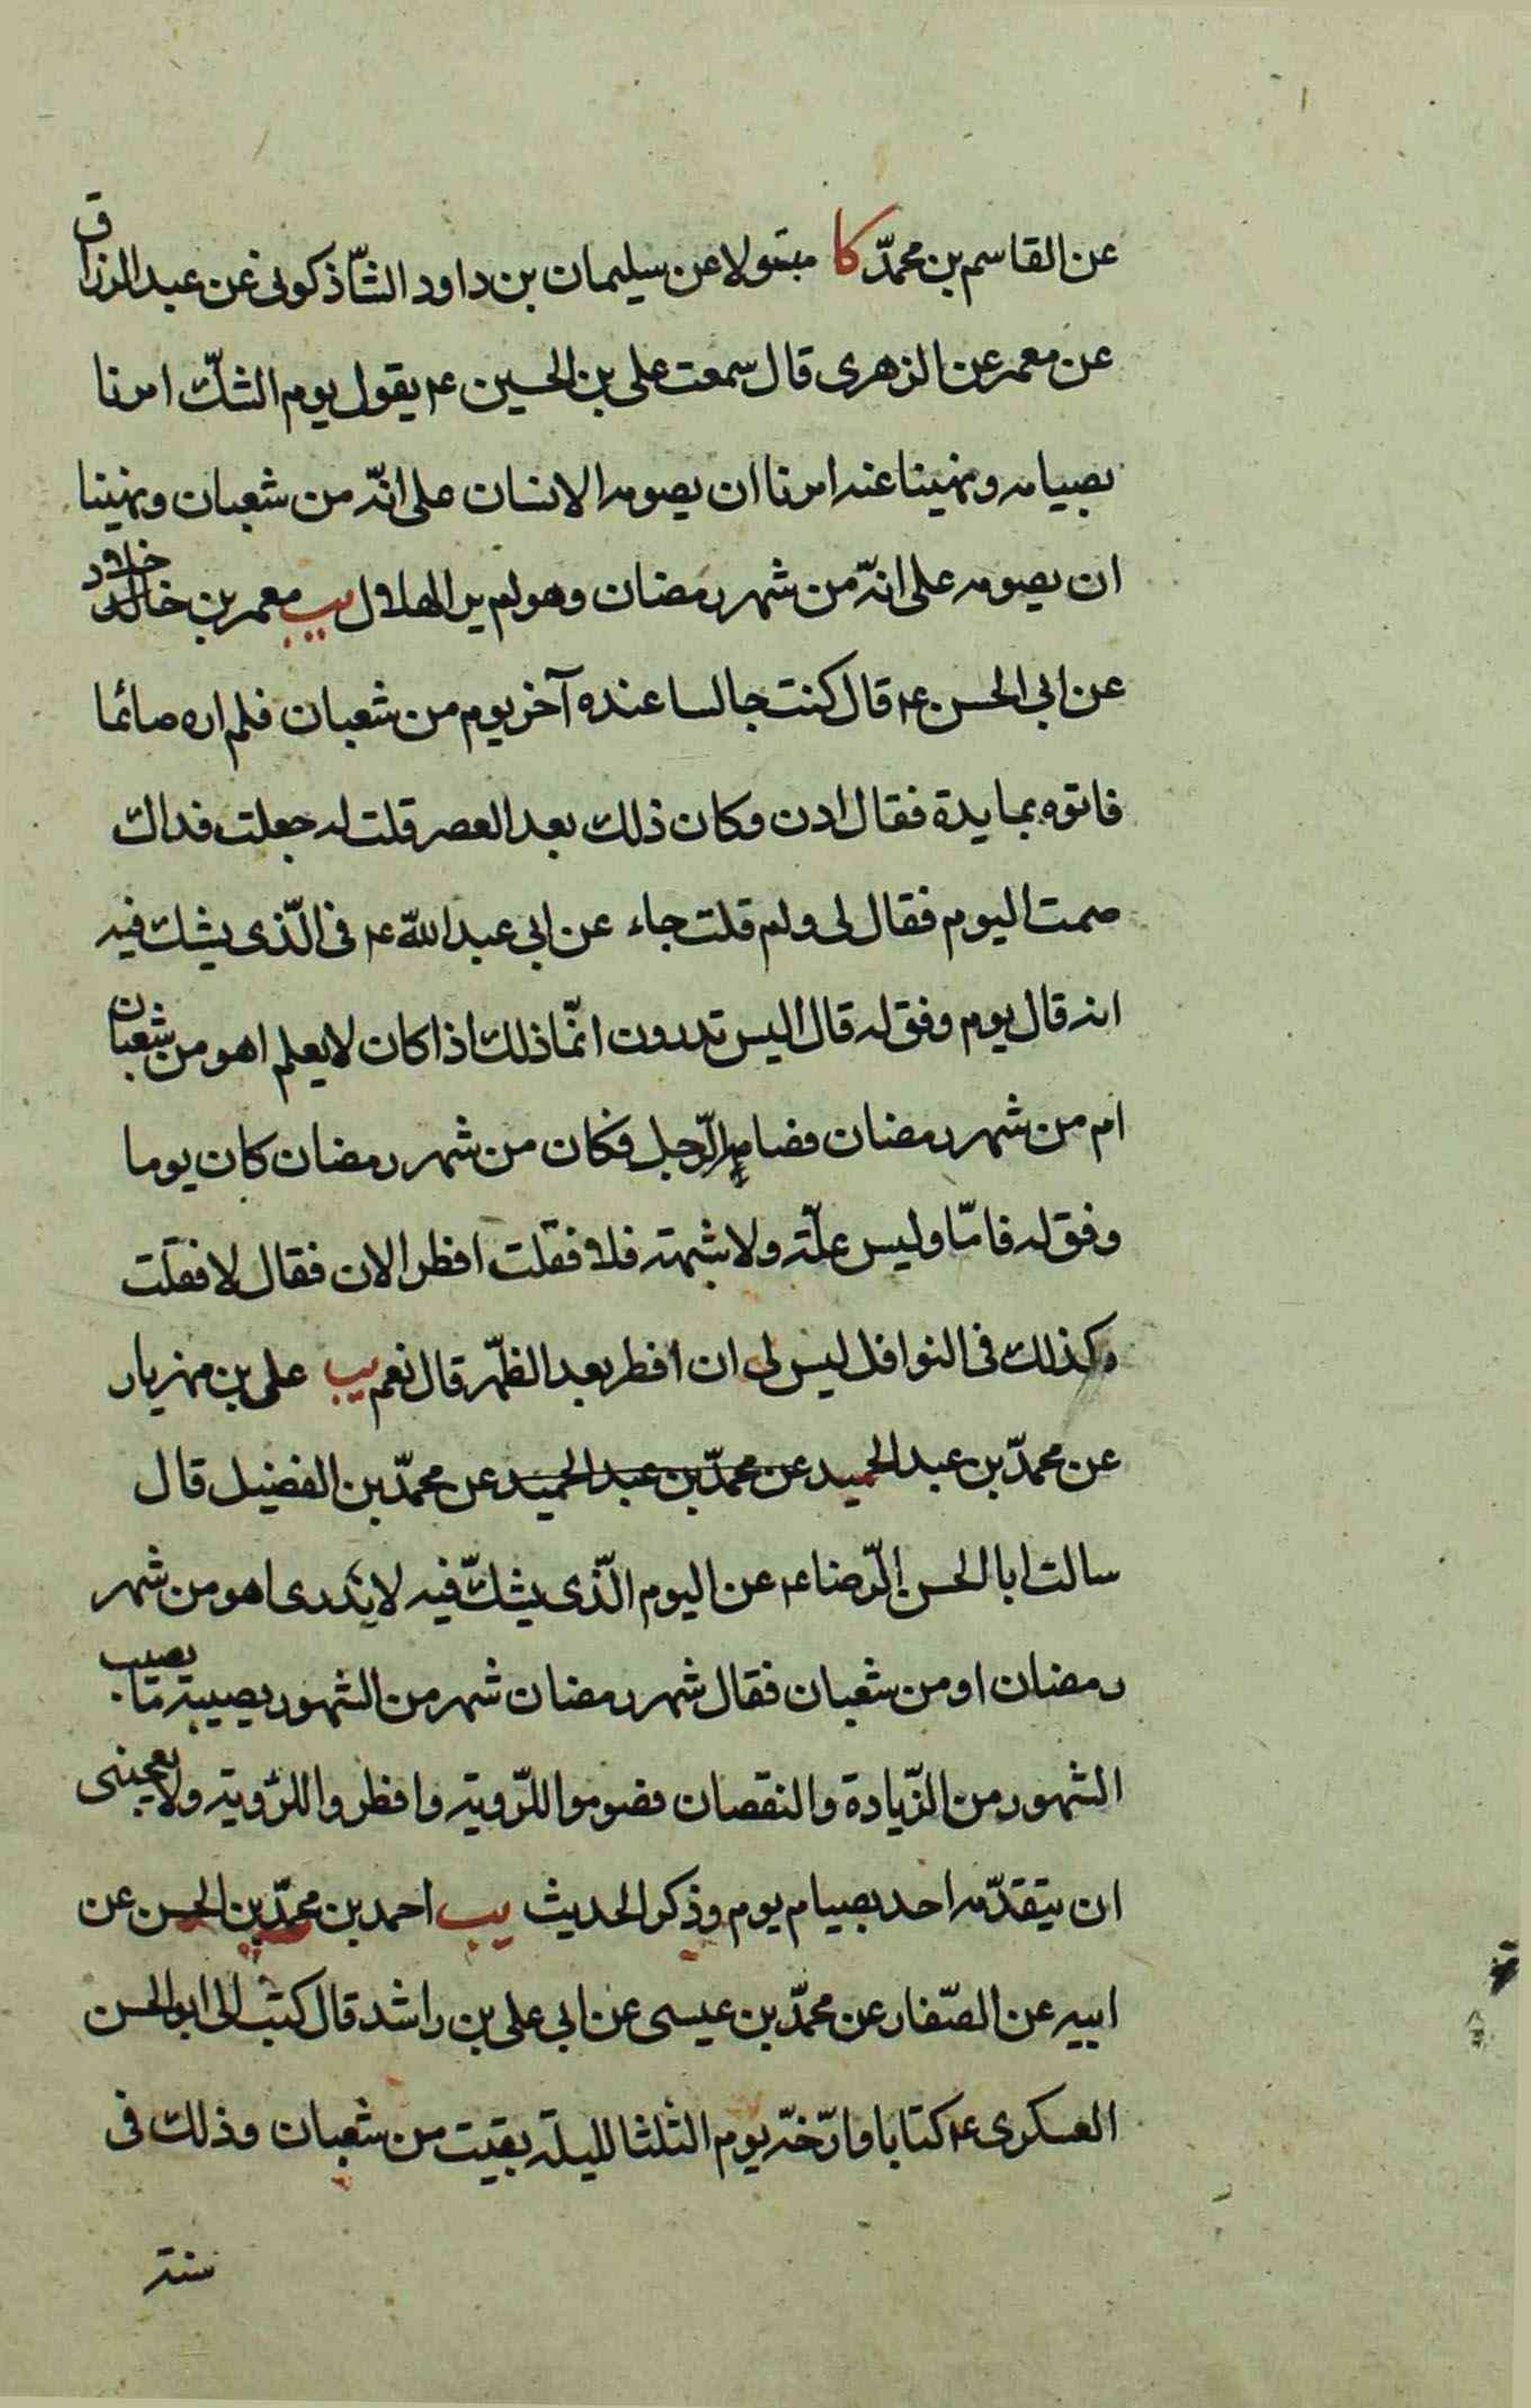 عن القاسم بن محمّد كا مبتولا عن سليمان بن داود الشّاذكونى عن عبد الرزاق
عن معمر عن الزهرى قال سمعت على بن الحسين ع يقول يوم الشكّ امرنا
بصيامه ونهينا عنه امرنا ان يصومه الانسان على انّه من شعبان ونهينا
ان يصومه على انّه من شهر رمضان وهو لم ير الهلال يب معمر بن خالد خلاد
عن ابى الحسن ع قال كنت جالسا عنده آخر يوم من شعبان فلم اره صائما
فاتوه بمايدة فقال ادن وكان ذلك بعد العصر قلت له جعلت فداك
صمت اليوم فقال لى ولم قلت جاء عن ابى عبد اللّه ع فى الّذى يشك فيه
انه قال يوم وفق له قال اليس تدرون انّما ذلك اذا كان لا يعلم اهو من شعبان
ام من شهر رمضان فصامه الرّجل فكان من شهر رمضان كان يوما
وفق له فامّا وليس علّة ولا شبهة فلا فقلت افطر الان فقال لا فقلت
وكذلك فى النوافل ليس لى ان افطر بعد الظّهر قال نعم يب على بن مهزيار
عن محمّد بن عبد الحميد عن محمّد بن عبد الحميد عن محمّد بن الفضيل قال
سالت ابا الحسن الرّضا ع عن اليوم الّذى يشكّ فيه لا يدرى اهو من شهر
رمضان او من شعبان فقال شهر رمضان شهر من الشهور يصيبه ما يصيب
الشهور من الزّيادة والنقصان فصوموا للرّوية وافطروا للرّوية ولا يعجبنى
ان يتقدّمه احد بصيام يوم وذكر الحديث يب احمد بن محمّد بن الحسن عن
ابيه عن الصّفار عن محمّد بن عيسى عن ابى على بن راشد قال كتب الى ابو الحسن
العسكرى ع كتابا وارّخه يوم الثلثا لليلة بقيت من شعبان وذلك فى
سنة